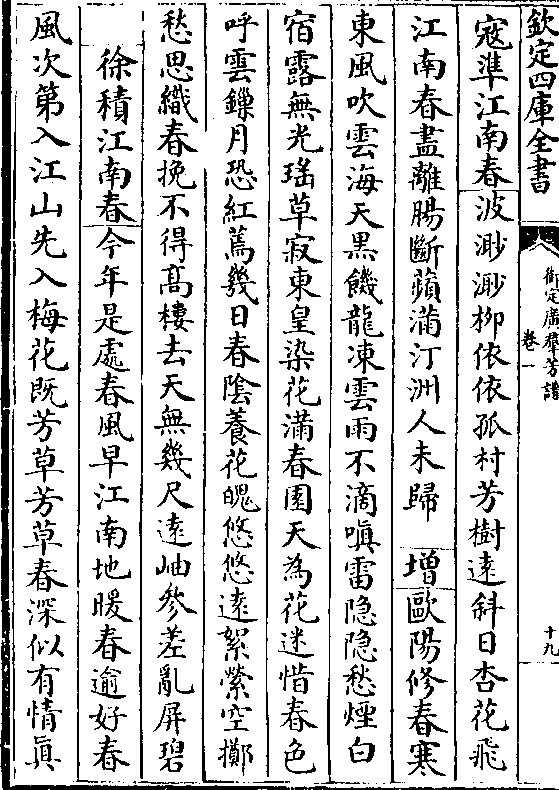 欽定四庫全書
御定廣羣芳譜
卷一
十九
寇準江南春波渺渺栁依依孤村芳樹逺斜日杏花飛
江南春盡離腸斷蘋滿汀洲人未歸　增歐陽修春寒
東風吹雲海天黑饑龍凍雲雨不滴嗔雷隐隐愁煙白
宿露無光瑤草寂東皇染花滿春園天為花迷惜春色
呼雲鏁月恐紅蔫幾日春陰養花魄悠悠逺絮縈空擲
愁思織春挽不得髙樓去天無幾尺逺岫參差亂屏碧
徐積江南春今年是處春風早江南地暖春逾好春
風次第入江山先入梅花既芳草芳草春深似有情眞